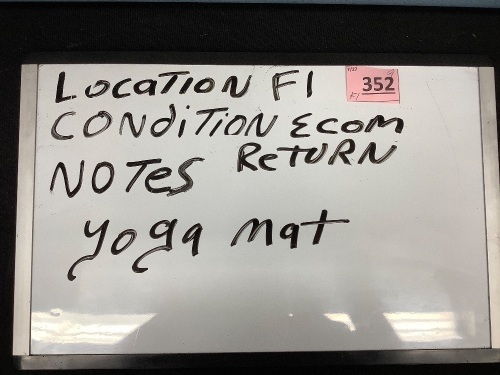 Location F1
352
F1
Condition Ecom
Return
Notes
yoga mat